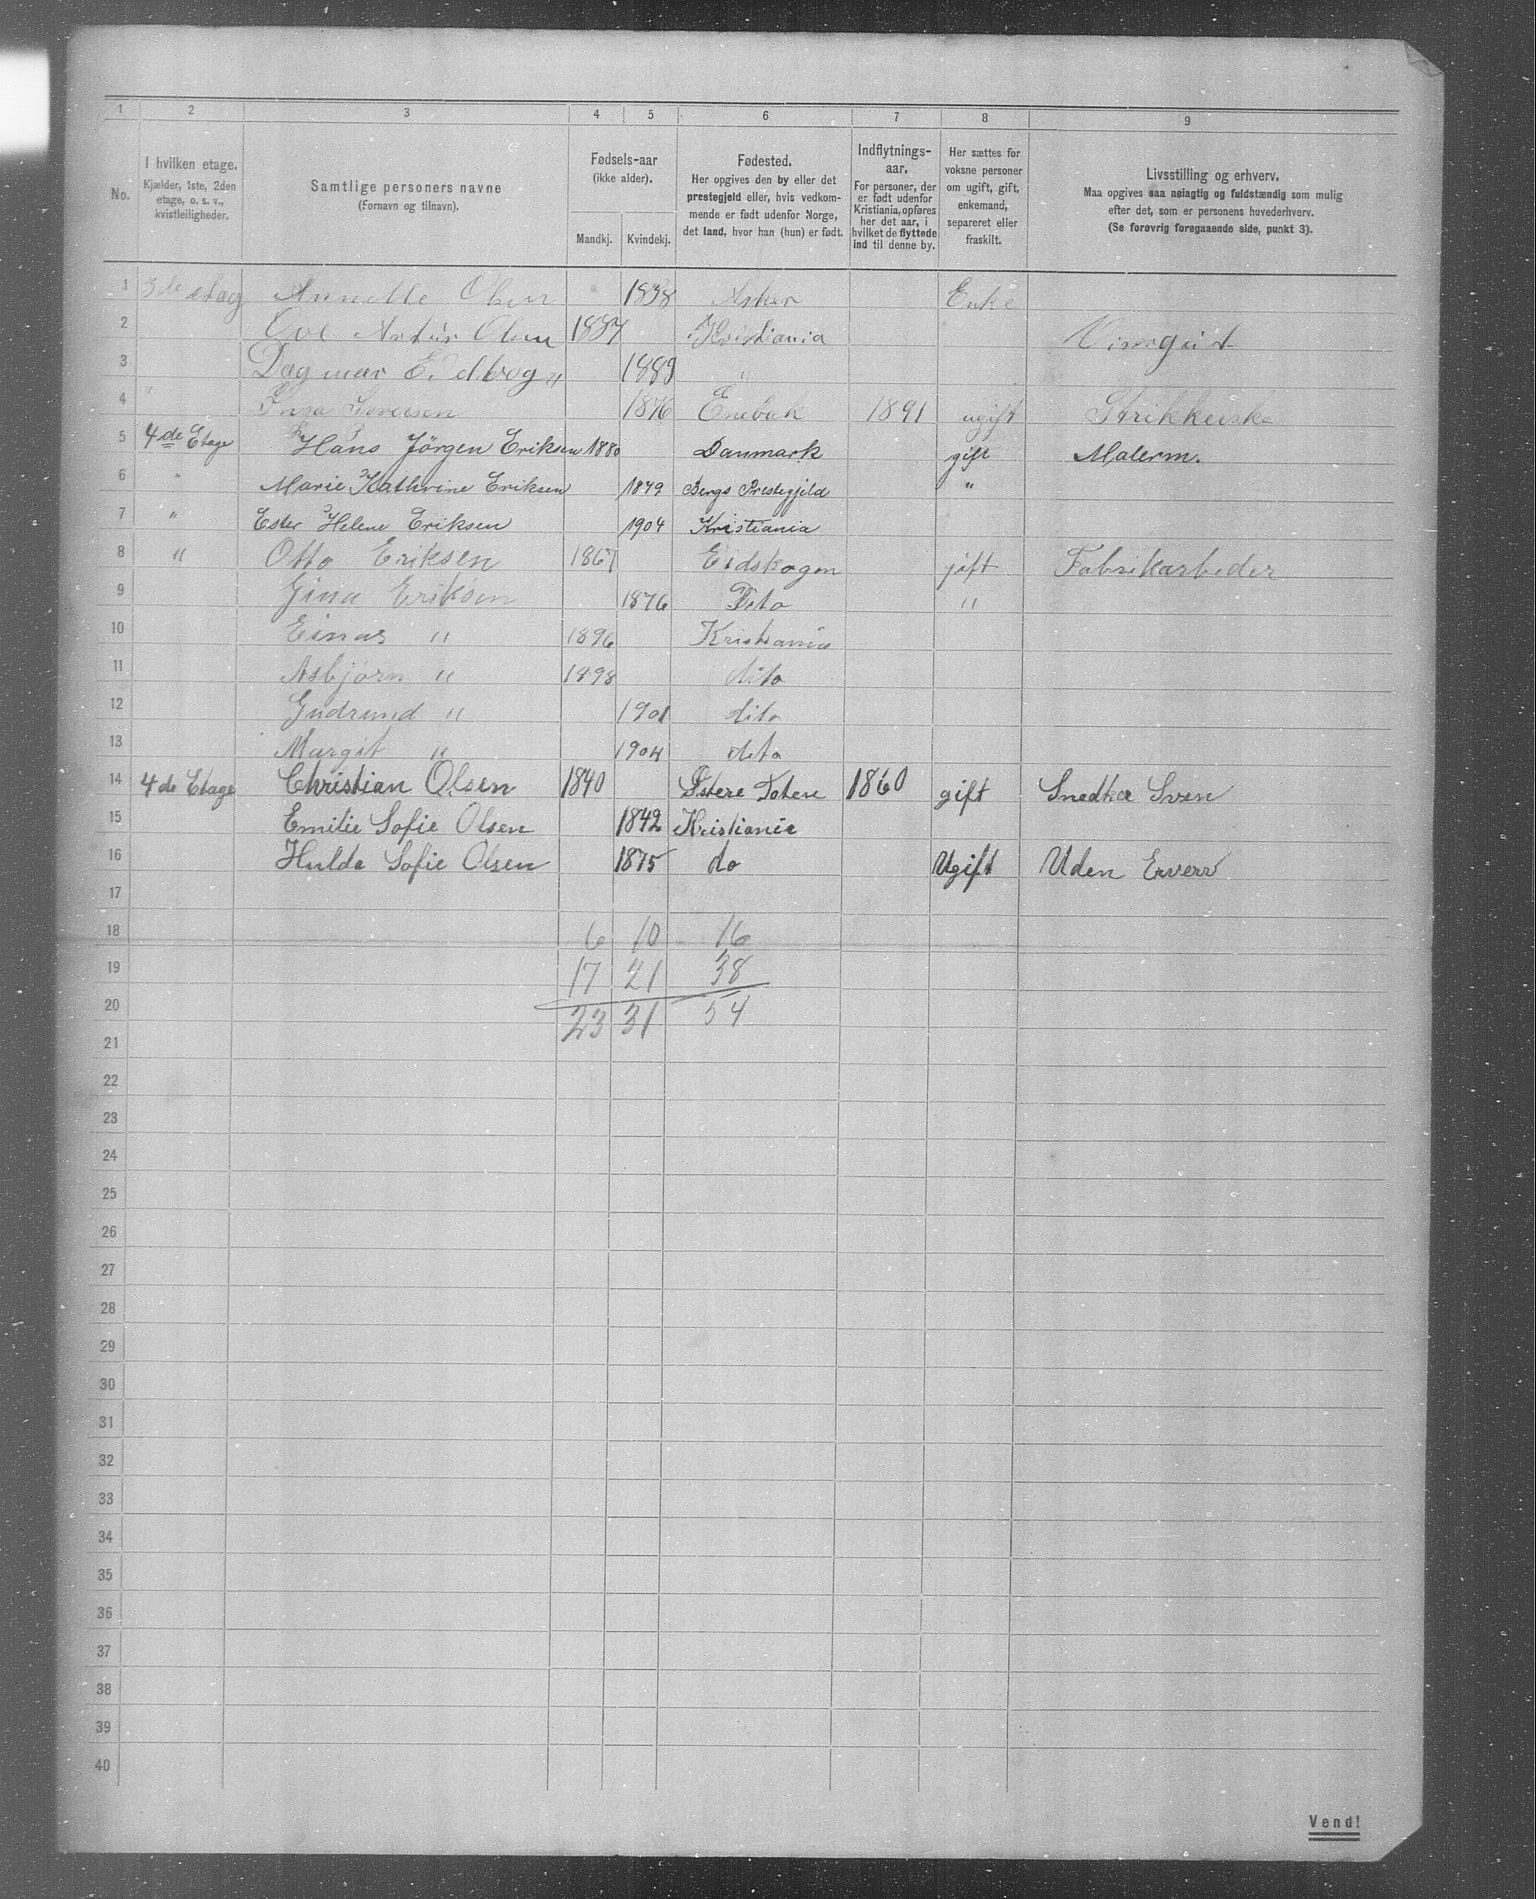 1 2 3 4 5 6 7 8 9
No.
I hvilken etage.
Kjælder, 1ste, 2den
etage, o. s. v.,
kvistleiligheder.
Samtlige personers navne
(Fornavn og tilnavn).
Fødsels-aar
(ikke alder).
Mandkj. Kvindekj.
Fødested.
Her opgives den by eller det
prestegjeld eller, hvis vedkom-
mende er født udenfor Norge,
det land, hvor han (hun) er født.
Indflytnings-
aar.
For personer, der
er født udenfor
Kristiania, opføres
her det aar, i
hvilket de flyttede
ind til denne by.
Her sættes for
voksne personer
om ugift, gift,
enkemand,
separeret eller
fraskilt.
Livsstilling og erhverv.
Maa opgives saa nøiagtig og fuldstændig som mulig
efter det, som er personens hovederhverv.
(Se forøvrig foregaaende side, punkt 3).
1 3de etag Annette Olsen 1838 Asker Enke
2 Artur Olsen Kristiania
3 Dagmar " 1889 "
4 " 1876 Enebak 1891 ugift
5 4de Etage Hans Jörgen Eriksen 1880 Danmark gift Malerm.
6 " Marie Kathrine Eriksen 1879 Bergs Prestegjeld "
7 " Ester Helene Eriksen 1904 Kristiania
8 " Otto Eriksen 1867 Eidskogen jift Fabrikarbeder
9 Gina Eriksen 1876 Dito "
10 Einar " 1896 Kristiania
11 Asbjørn " 1898 dito
12 Gudrund " 1901 dito
13 Margit " 1904 dito
14 4de Etage Christian Olsen 1840 1860 gift Snedker Sven
15 Emilie Sofie Olsen 1842 Kristiania
16 Hulda Sofie Olsen 1875 do Ugift Uden Erverv
17
18 6 10 16
19 17 21 38
20 23 31 54
21
22
23
24
25
26
27
28
29
30
31
32
33
34
35
36
37
38
39
40
Vend!